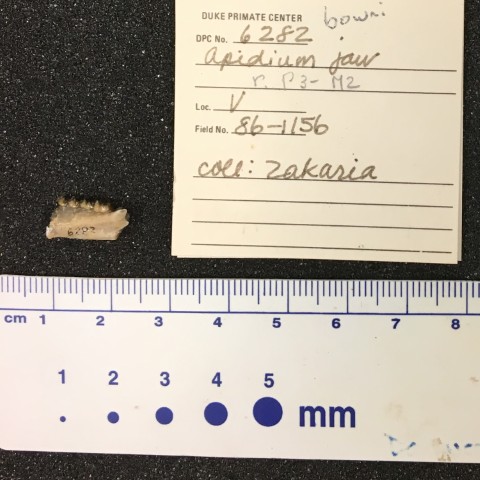 DUKE PRIMATE CENTER bowni
DPC No. 6282
Apidium jaw
r. P3-M2
Loc. V
Field No. 86-1156
coll: Zakaria
6282
cm 1 2 3 4 5 6 7 8
1 2 3 4 5
mm